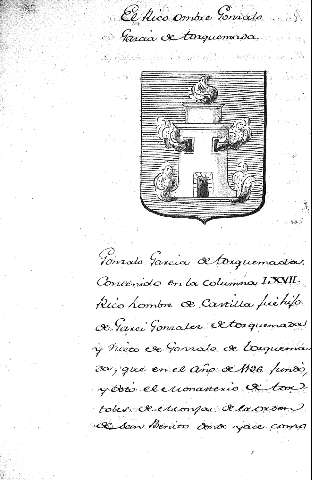 El Rico ombre Gonzalo
Garcia de torquemada.
Gonzalo Garcia de torquemada.
Contenido en la columna LXVII.
Rico hombre de Castilla fue hijo
de Garci Gonzalez de torquemada
y Nieto de Gonzalo de torquema
da, que en el Año de fundo,
y doto el Monasterio de
de de la orden
de San Benito donde yace como